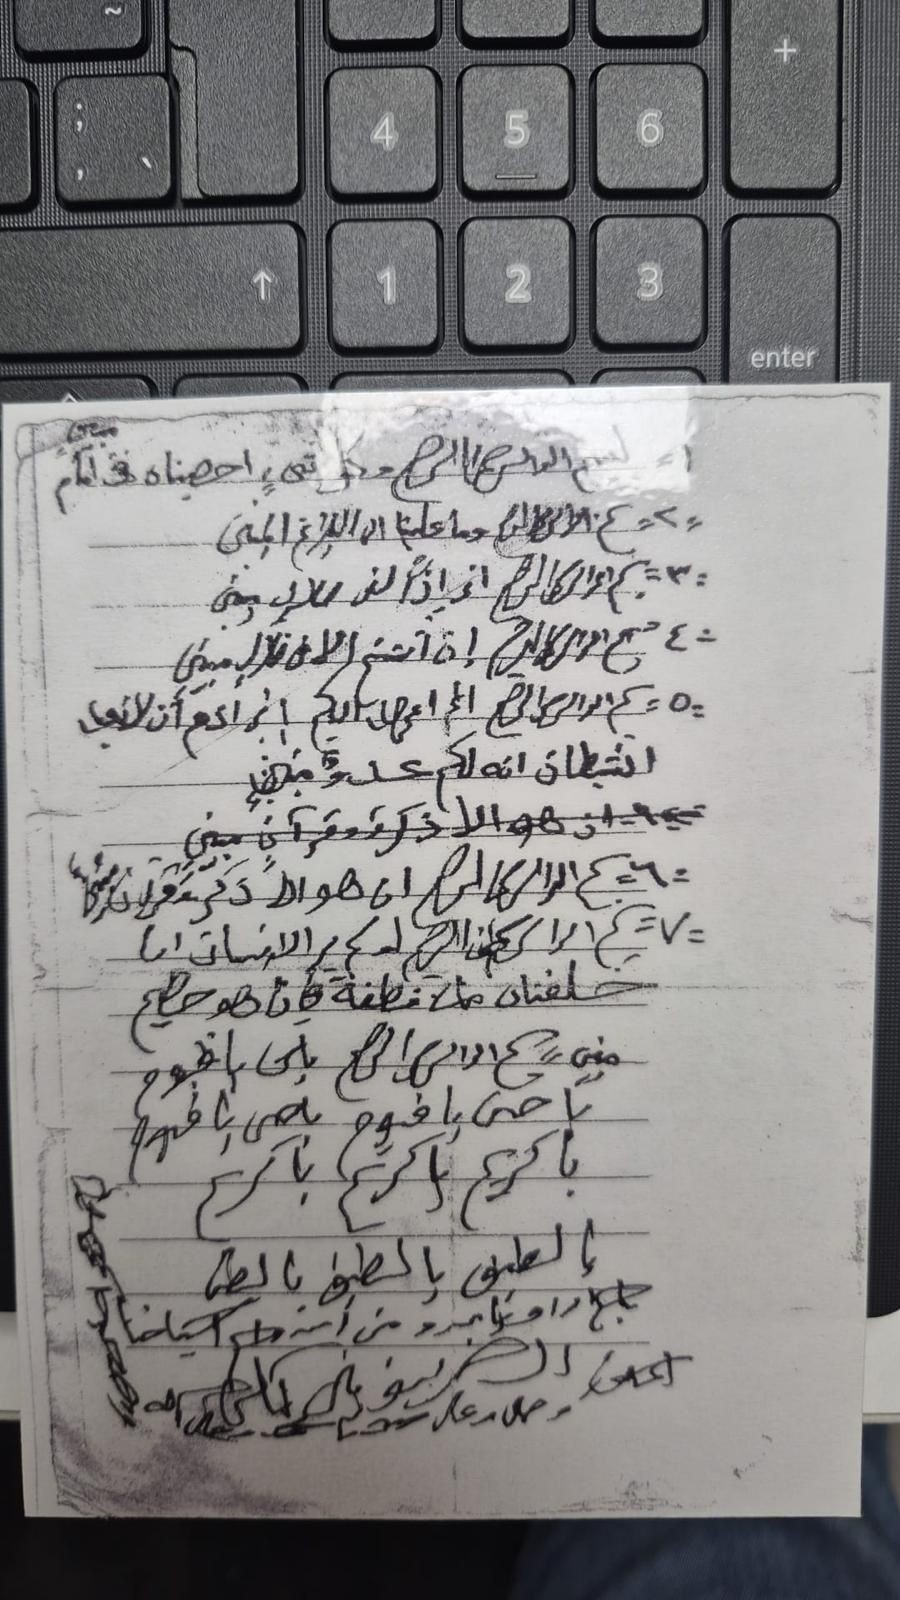 ~
;
, `
4 5 6 +
↑ 1 2 3
enter
مبين
١= بسم الله الرحمن الرحيم وكل شيء احصيناه في امام
=٢= بسم الله الرحمن الرحيم وما علينا الا البلاغ المبين
=٣= بسم الله الرحمن الرحيم اني إذاً لفي ضلال مبين
=٤ بسم الله الرحمن الرحيم إن أنتم الا في ضلال مبين
=٥= بسم الله الرحمن الرحيم الم اعهد اليكم يا بني آدم أن لا تعبدوا
الشيطان انه لكم عدو مبين
=٦= ان هو الا ذكر وقرآن مبين
=٦= بسم الله الرحمن الرحيم ان هو الا ذكر وقرآن مبين
=٧= بسم الله الرحمن الرحيم اولم ير الانسان انا
خلقناه من نطفة فإذا هو خصيم
مبين = بسم الله الرحمن الرحيم يا حي يا قيوم
يا حي يا قيوم يا حي يا قيوم
يا كريم يا كريم يا كريم
يا لطيف يا لطيف يا لطيف